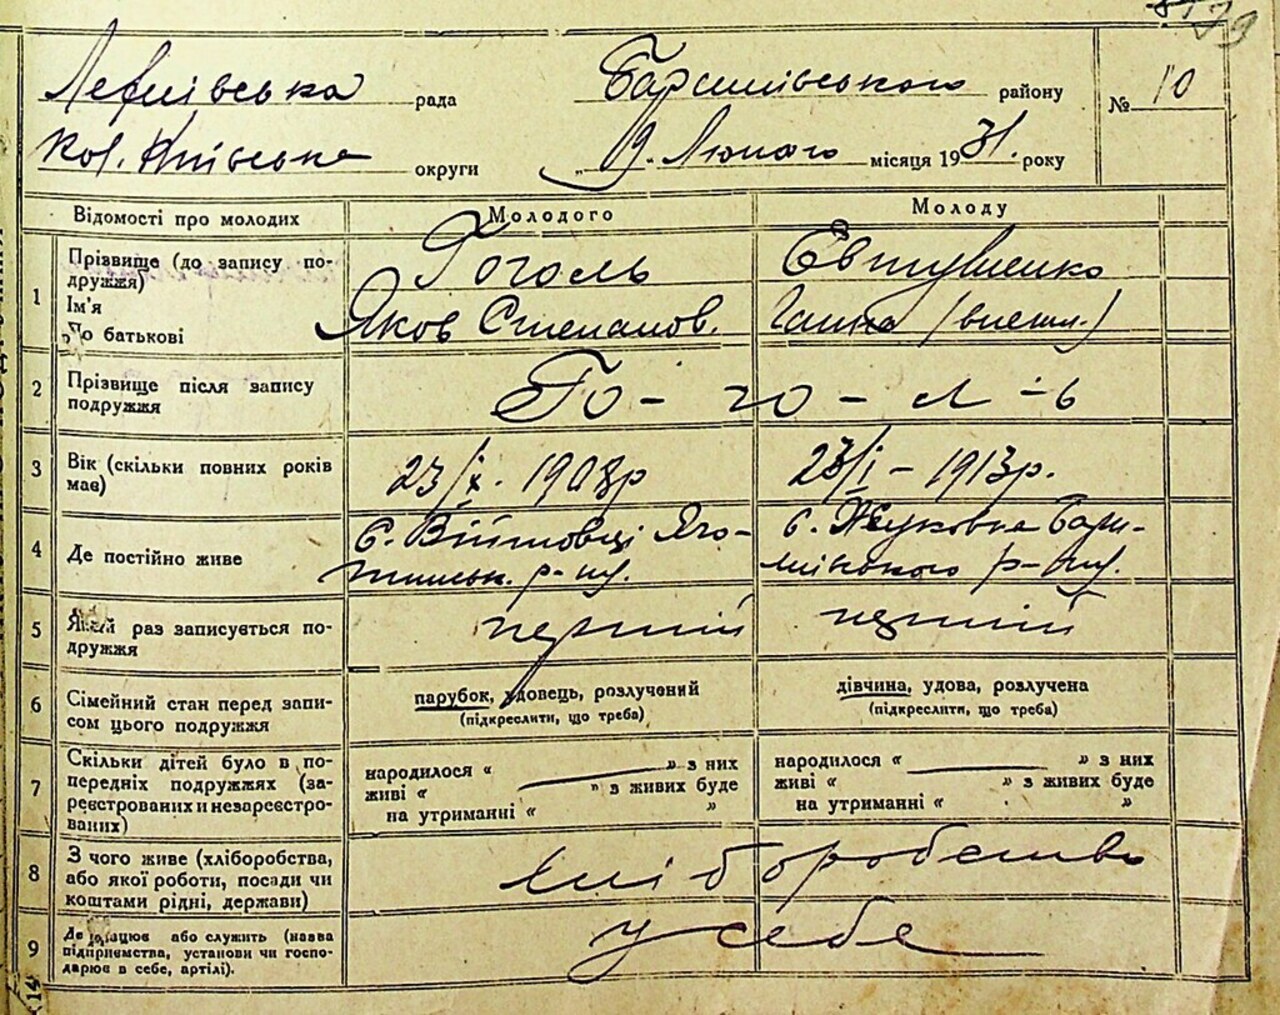 рада Баришівського району № 10
кол. Київська округи „19. Лютого місяця 1931. року
Відомості про молодих Молодого Молоду
1 Прізвище (до запису по-
дружжя) Гоголь Євтушенко
Ім'я
По батькові Яков Степанов. Ганна
2 Прізвище після запису
подружжя Го-го-л-ь
3 Вік (скільки повних років
має) 23/ІХ. 1908р 23/І - 1913р.
4 Де постійно живе
с. Війтовці Яго-
тинськ. р-ну. с. Жуковка Бари-
шівського р-ну.
5 Який раз записується по-
дружжя перший перший
6 Сімейний стан перед запи-
сом цього подружжя
парубок, удовець, розлучений
(підкреслити, що треба)
дівчина, удова, розлучена
(підкреслити, що треба)
7 Скільки дітей було в по-
передніх подружжях (за-
реєстрованих и незареєстро-
ваних)
народилося « » з них
живі « » з живих буде
на утриманні « »
народилося « » з них
живі « » з живих буде
на утриманні « »
8 З чого живе (хліборобства,
або якої роботи, посади чи
коштами рідні, держави) хліборобство
9 Де працює або служить (назва
підприємства, установи чи госпо-
дарює в себе, артілі). у себе